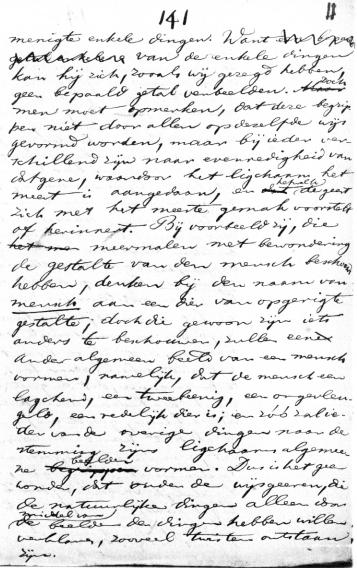 141
menigte enkele dingen. Want
van de enkele dingen
kan hij zich, zooals wij gezegd hebben,
geen bepaald getal verbeelden. Maar Doch
men moet opmerken, dat deze begrip
pen niet door allen op dezelfde wijs
gevormd worden, maar bij ieder ver
schillend zijn naar evenredigheid van
datgene, waardoor het ligchaam het
meest is aangedaan, en de geest
zich met het meeste gemak voorstelt
of herinnert. Bij voorbeeld zij, die
het me meermalen met bewondering
de gestalte van den mensch beschouwd
hebben, denken bij den naam van
mensch aan een dier van opgerigte
gestalte; doch die gewoon zijn iets
anders te beschouwen, zullen een
ander algemeen beeld van een mensch
vormen, namelijk, dat de mensch een
lagchend, een tweebeenig, een ongevleu-
geld, een redelijk dier is; en zóó zal ie-
der van de overige dingen naar de
stemming zijns ligchaams algemee-
ne begrippen beelden vormen. Dus is het geen
wonder, dat onder de wijsgeeren, die
de natuurlijke dingen alleen door
middel van
de beelden der dingen hebben willen
verklaren, zooveel twisten ontstaan
zijn.